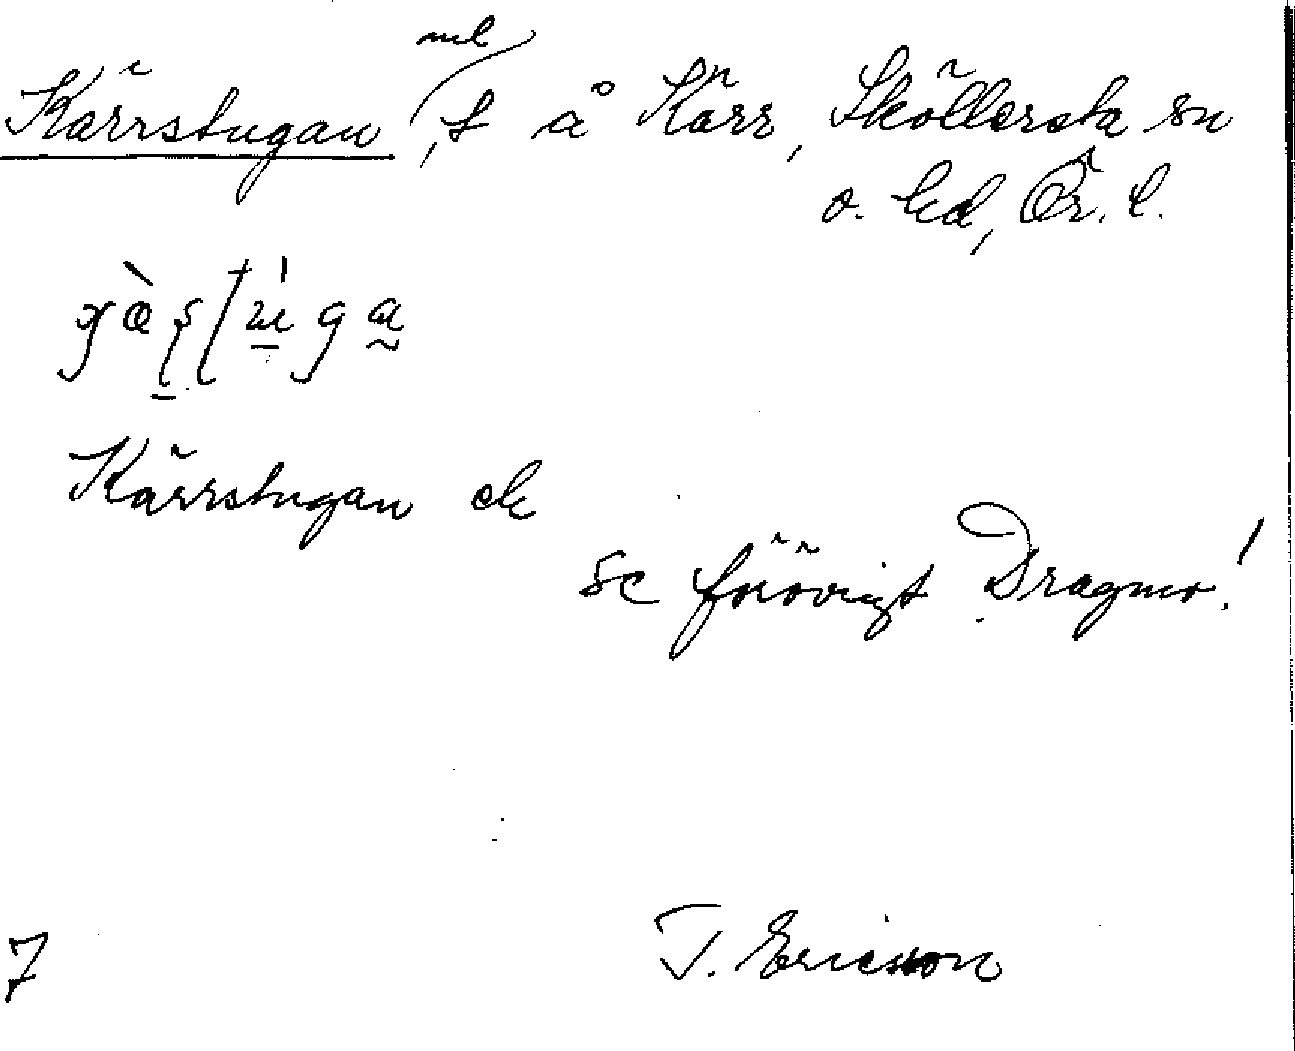 Kärrstugan, t å Kärr, Sköllersta sn
o. hd, Ör. l.
Kärrstugan ek
se förövrigt Dragmo!
7 T. Ericsson